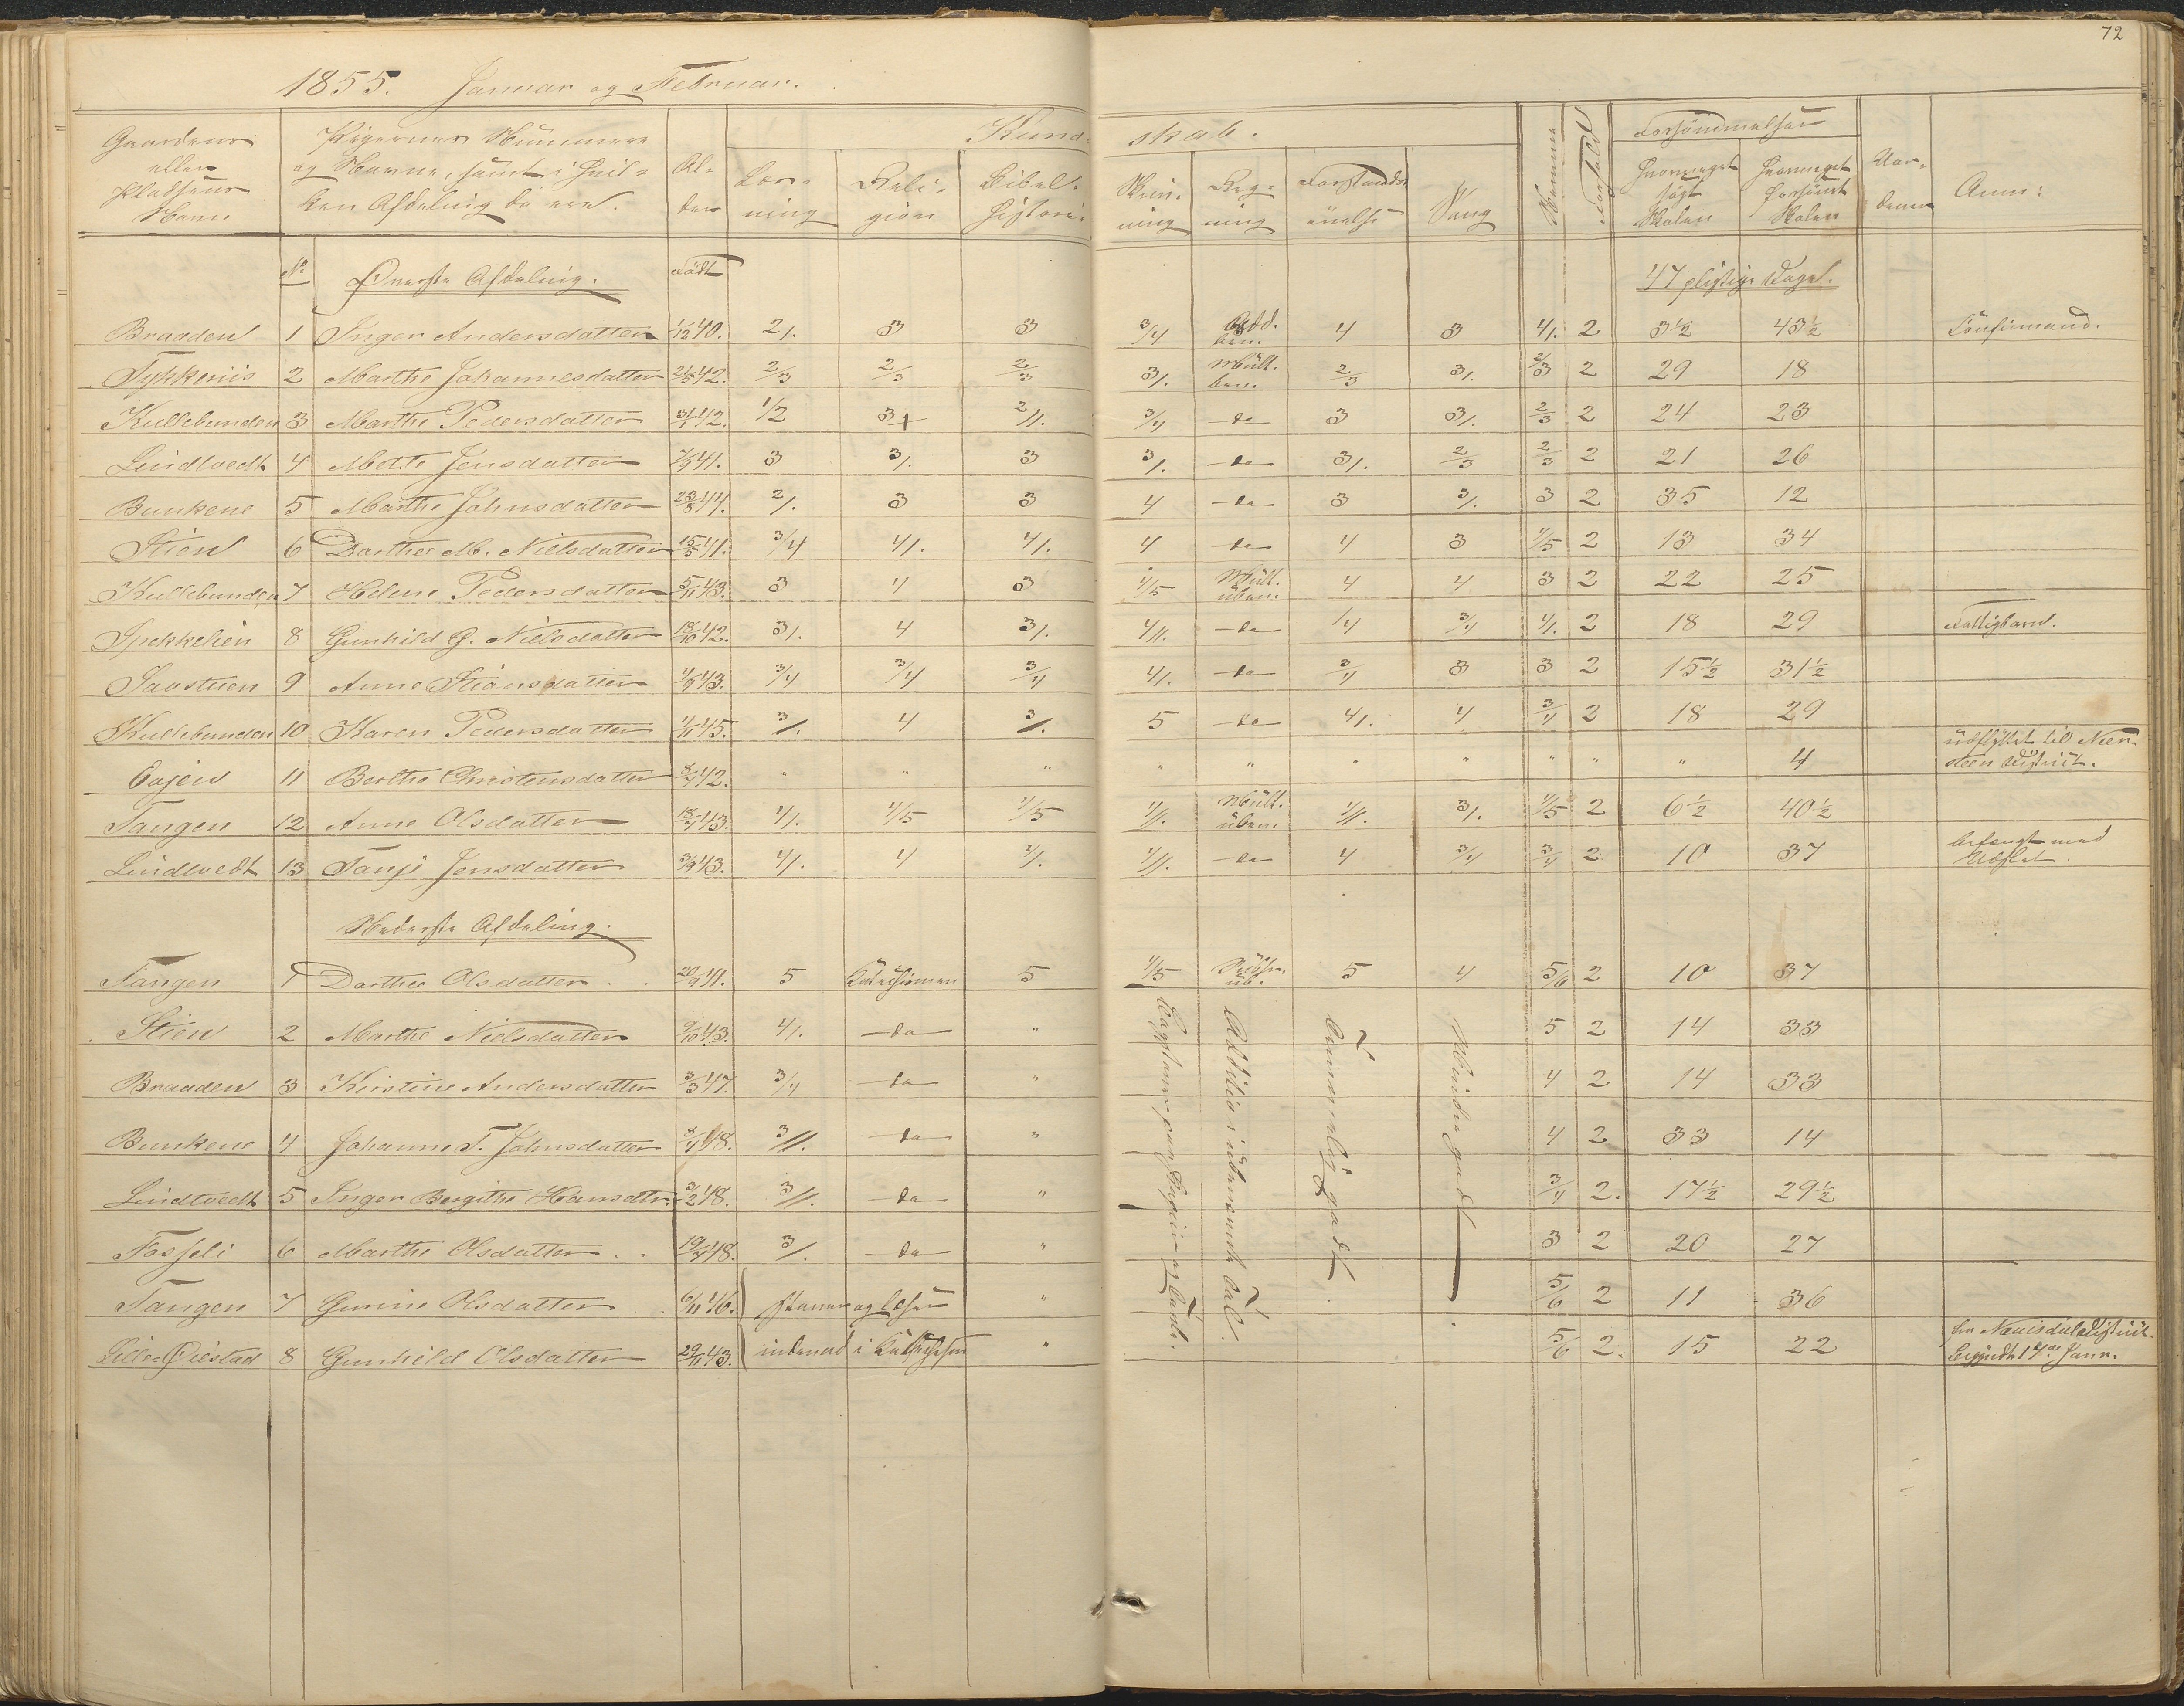 72
1855. Januar og Februar.
Gaardens eller Pladsens Navn | Pigernes Nummere og Navne, samt i hvilken Afdeling de ere. | Alder | Kundskab. | Forsømmelser | Anm:
Læsning | Religion | Bibelhistorie | Skrivning | Regning | Forstandsøvelse | Sang | Evne | Forhold | Hvormeget søgt Skolen | Hvormeget forsømt Skolen
No | Øverste Afdeling. | Født | 47 pligtige Dage.
Braaden 1 Inger Andersdatter 1/12 40. 2/. 3 3 3/4 Add. ben. 4 3 4/. 2 3½ 43½ Confirmand.
Tykkeriis 2 Marthe Johannesdatter 21/5 42. 2/3 2/3 2/3 3/. Mult. ben. 2/3 3/. 2/3 2 29 18
Kullebunden 3 Marthe Pedersdatter 31/1 42. 1/2 3+ 2//. 3/4 do 3 3/. 2/3 2 24 23
Lindtvedt 4 Mette Jensdatter 7/9 41. 3 3/. 3 3/. do 3/. 2/3 2/3 2 21 26
Bunkene 5 Marthe Johnsdatter 23/8 44. 2/. 3 3 4 do 3 3/. 3 2 35 12
Stien 6 Dorthea M. Nielsdatter 15/5 41. 3/4 4/. 4/. 4 do 4 3 4/5 2 13 34
Kullebunden 7 Helene Pedersdatter 5/11 43. 3 4 3 4/5 Mult. uben. 4 4 3 2 22 25
Spekkelien 8 Gunhild G. Nielsdatter 18/10 42. 3/. 4 3/. 4//. do 4 3/4 4/. 2 18 29 Fattigbarn.
Saustuen 9 Anne Stiansdatter 4/9 43. 3/4 3/4 3/4 4/. do 3/4 3 3 2 15½ 31½
Kullebunden 10 Karen Pedersdatter 4/11 45. 3/. 4 3/. 5 do 4/. 4 3/4 2 18 29
11 Berthe Christensdatter 42. " " " " " " " " " " 4 udflyttet til
Tangen 12 Anne Olsdatter 18/4 43. 4/. 4/5 4/5 4//. Mult. uben. 4//. 3/. 4/5 2 6½ 40½
Lindtvedt 13 Tanje Jensdatter 3/9 43. 4/. 4 4/. 4//. do 4 3/4 3/4 2 10 37 befængt med Udslet.
Nederste Afdeling.
Tangen 1 Dorthea Olsdatter 20/9 41. 5 Katechismen 5 4/5 5 4 5/6 2 10 37
Stien 2 Marthe Nielsdatter 9/10 43. 4/. do " 5 2 14 33
Braaden 3 Kirstine Andersdatter 3/3 47. 3/4 do " 4 2 14 33
Bunkene 4 Johanne T. Johnsdatter 48. 3//. do " 4 2 33 14
Lindtvedt 5 Inger Bergithe Hansdtr. 3/2 48. 3//. do " 3/4 2. 17½ 29½
Fosseli 6 Marthe Olsdatter 19/4 48. 3/. do " 3 2 20 27
Tangen 7 Gunine Olsdatter 6/11 46. staver og læser " 5/6 2 11 36
Lille Øiestad 8 Gunhild Olsdatter 29/11 43. indenad i Katechismen " 5/6 2. 15 22
Addition i ubenævnte Tal.
Temmelig godt.
Mindre godt